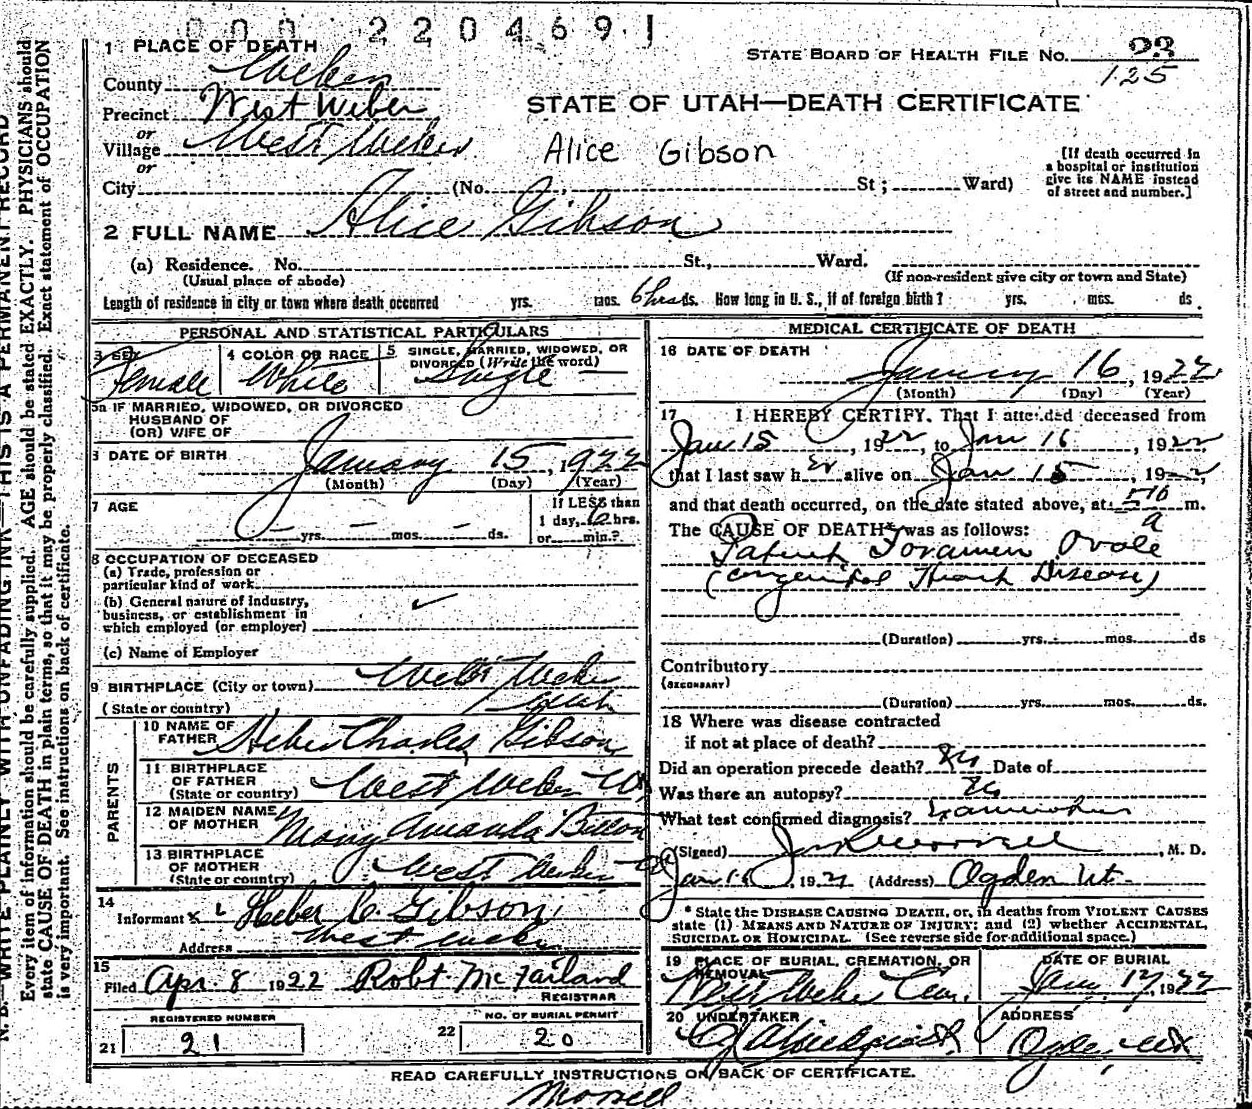 000 220469 1
1 PLACE OF DEATH
STATE BOARD OF HEALTH FILE No. 23
125
County Weber
Precinct West Weber
STATE OF UTAH—DEATH CERTIFICATE
or
Village West Weber
Alice Gibson
[If death occurred in
a hospital or institution
give its NAME instead
of street and number.]
or
City (No. St; Ward)
2 FULL NAME Alice Gibson
(a) Residence. No. St., Ward.
(Usual place of abode) (If non-resident give city or town and State)
Length of residence in city or town where death occurred yrs. mos. 6 hrs ds. How long in U. S., if of foreign birth? yrs. mos. ds
PERSONAL AND STATISTICAL PARTICULARS
3 SEX Female
4 COLOR OR RACE White
5 SINGLE, MARRIED, WIDOWED, OR
DIVORCED (Write the word)
Single
5a IF MARRIED, WIDOWED, OR DIVORCED
HUSBAND OF
(OR) WIFE OF
6 DATE OF BIRTH January 15, 1922
(Month) (Day) (Year)
7 AGE
yrs. mos. ds.
If LESS than
1 day, 6 hrs.
or min.?
8 OCCUPATION OF DECEASED
(a) Trade, profession or
particular kind of work
(b) General nature of industry,
business, or establishment in
which employed (or employer)
(c) Name of Employer
9 BIRTHPLACE (City or town) West Weber
(State or country) Utah
PARENTS
10 NAME OF
FATHER Heber Charles Gibson
11 BIRTHPLACE
OF FATHER
(State or country) West Weber Ut
12 MAIDEN NAME
OF MOTHER Mary Amanda
13 BIRTHPLACE
OF MOTHER
(State or country) West Weber
14
Informant Heber C. Gibson
Address West Weber
15
Filed Apr. 8 1922 Robt. McFarland
REGISTRAR
REGISTERED NUMBER
21 21
NO. OF BURIAL PERMIT
22 20
MEDICAL CERTIFICATE OF DEATH
16 DATE OF DEATH
January 16, 1922
(Month) (Day) (Year)
17 I HEREBY CERTIFY. That I attended deceased from
Jan 15, 1922, to Jan 16, 1922
that I last saw her alive on Jan 15, 1922,
and that death occurred, on the date stated above, at 5 10 a m.
The CAUSE OF DEATH* was as follows:
Patent Foramen Ovale
(Congenital Heart Disease)
(Duration) yrs. mos. ds
Contributory
(SECONDARY)
(Duration) yrs. mos. ds.
18 Where was disease contracted
if not at place of death?
Did an operation precede death? No Date of
Was there an autopsy? No
What test confirmed diagnosis?
(Signed) , M. D.
Jan 16, 1922 (Address) Ogden Ut.
* State the DISEASE CAUSING DEATH, or, in deaths from VIOLENT CAUSES
state (1) MEANS AND NATURE OF INJURY; and (2) whether ACCIDENTAL,
SUICIDAL OR HOMICIDAL. (See reverse side for additional space.)
19 PLACE OF BURIAL, CREMATION, OR
REMOVAL
West Weber Cem.
DATE OF BURIAL
Jan. 17, 1922
20 UNDERTAKER
ADDRESS
Ogden, Ut
READ CAREFULLY INSTRUCTIONS ON BACK OF CERTIFICATE.
Morrell
N. B.—WRITE PLAINLY WITH UNFADING INK—THIS IS A PERMANENT RECORD
Every item of information should be carefully supplied. AGE should be stated EXACTLY. PHYSICIANS should
state CAUSE OF DEATH in plain terms, so that it may be properly classified. Exact statement of OCCUPATION
is very important. See instructions on back of certificate.